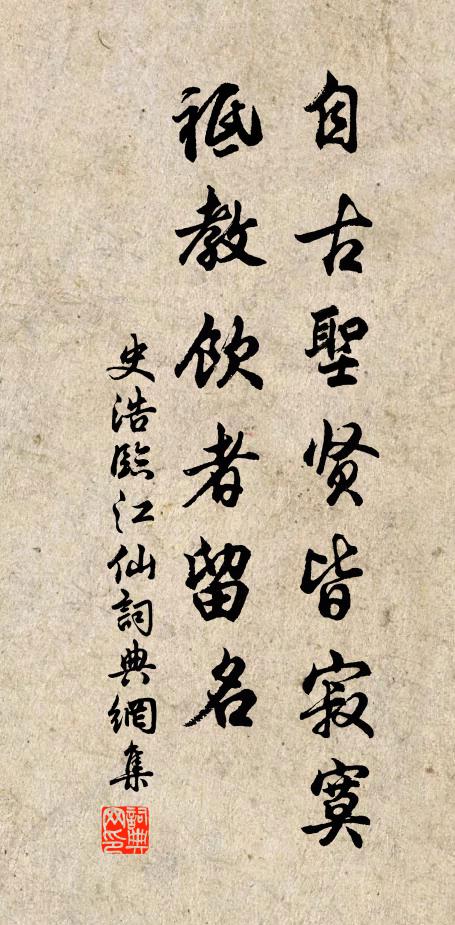 自古聖贤皆寂寞
祗教飲者留名
史浩臨江仙詞典網集
詞典网印